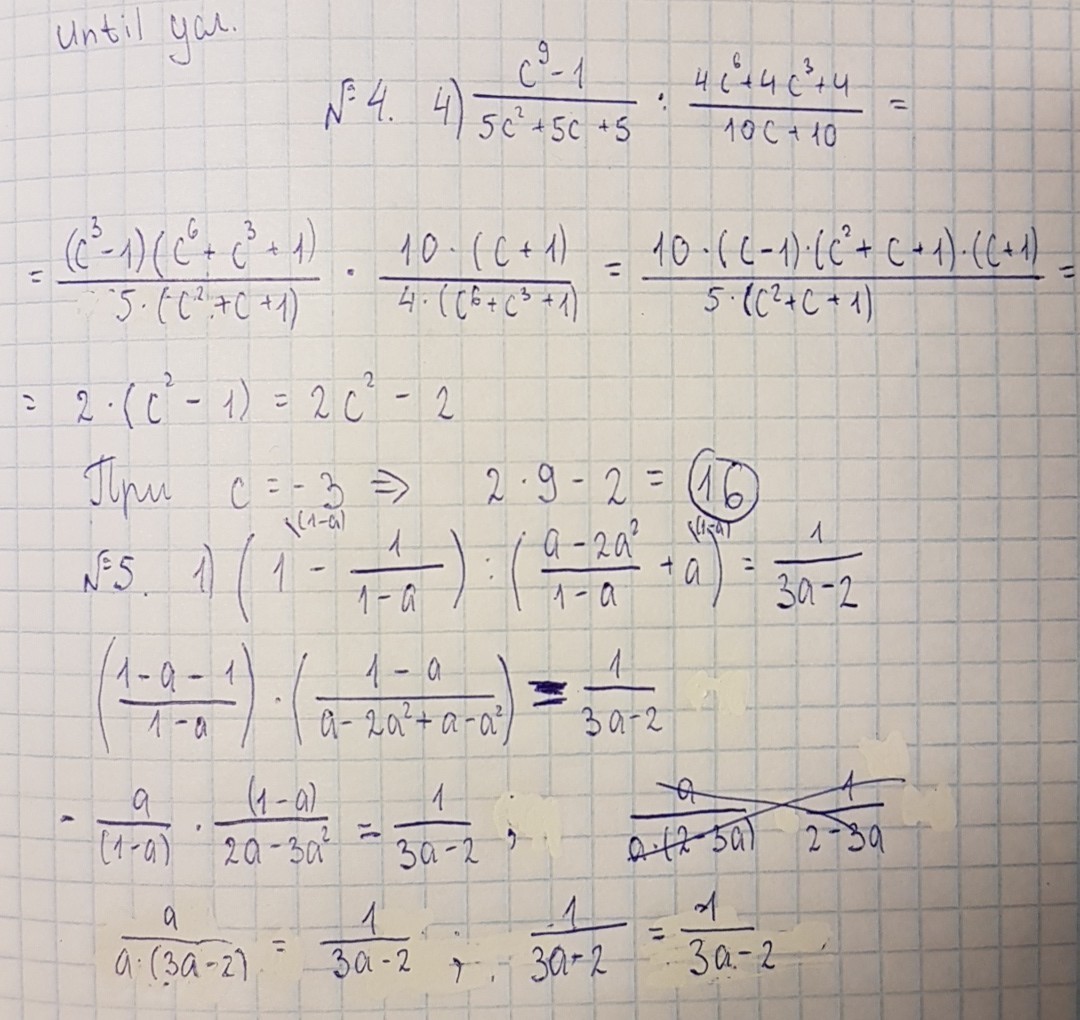 until ya.
№4. 4) (c⁹-1)/(5c²+5c+5) : (4c⁶+4c³+4)/(10c+10) =
= ((c³-1)(c⁶+c³+1))/(5·(c²+c+1)) · (10·(c+1))/(4·(c⁶+c³+1)) = (10·(c-1)·(c²+c+1)·(c+1))/(5·(c²+c+1)) =
= 2·(c²-1) = 2c²-2
При c=-3 ⇒ 2·9-2=16
\(1-a) \(1-a)
№5. 1) (1 - 1/(1-a)) : ((a-2a²)/(1-a) + a) = 1/(3a-2)
((1-a-1)/(1-a)) · ((1-a)/(a-2a²+a-a²)) = 1/(3a-2)
- a/(1-a) · (1-a)/(2a-3a²) = 1/(3a-2) ; a/(a·(2-3a)) 1/(2-3a)
a/(a·(3a-2)) = 1/(3a-2) ; 1/(3a-2) = 1/(3a-2)